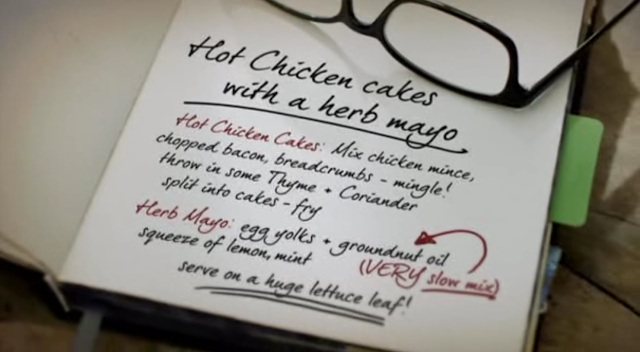 Hot Chicken cakes
with a herb mayo
Hot Chicken Cakes: Mix chicken mince,
chopped bacon, breadcrumbs - mingle!
throw in some Thyme + Coriander
split into cakes - fry
Herb Mayo: egg yolks + groundnut oil
squeeze of lemon, mint (VERY slow mix)
serve on a huge lettuce leaf!